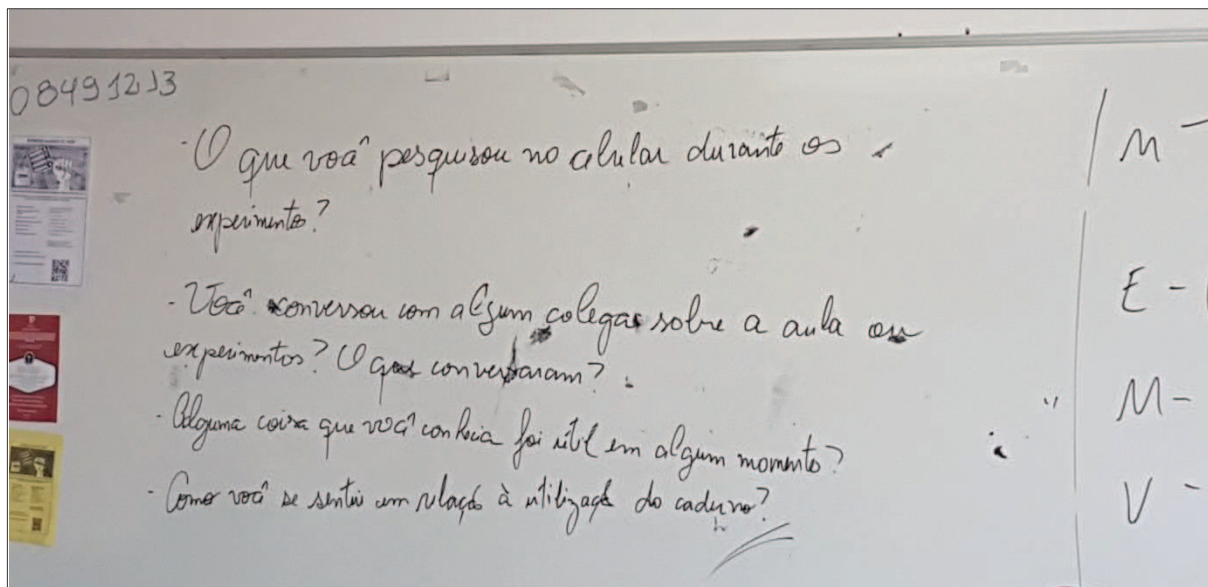 08491213
- O que você pesquisou no celular durante os
experimentos?
- Você conversou com algum colegas sobre a aula ou
experimentos? O que conversaram?
- Alguma coisa que você conhecia foi útil em algum momento?
- Como você se sentiu em relação à utilização do caderno?
M -
E -
" M -
V -